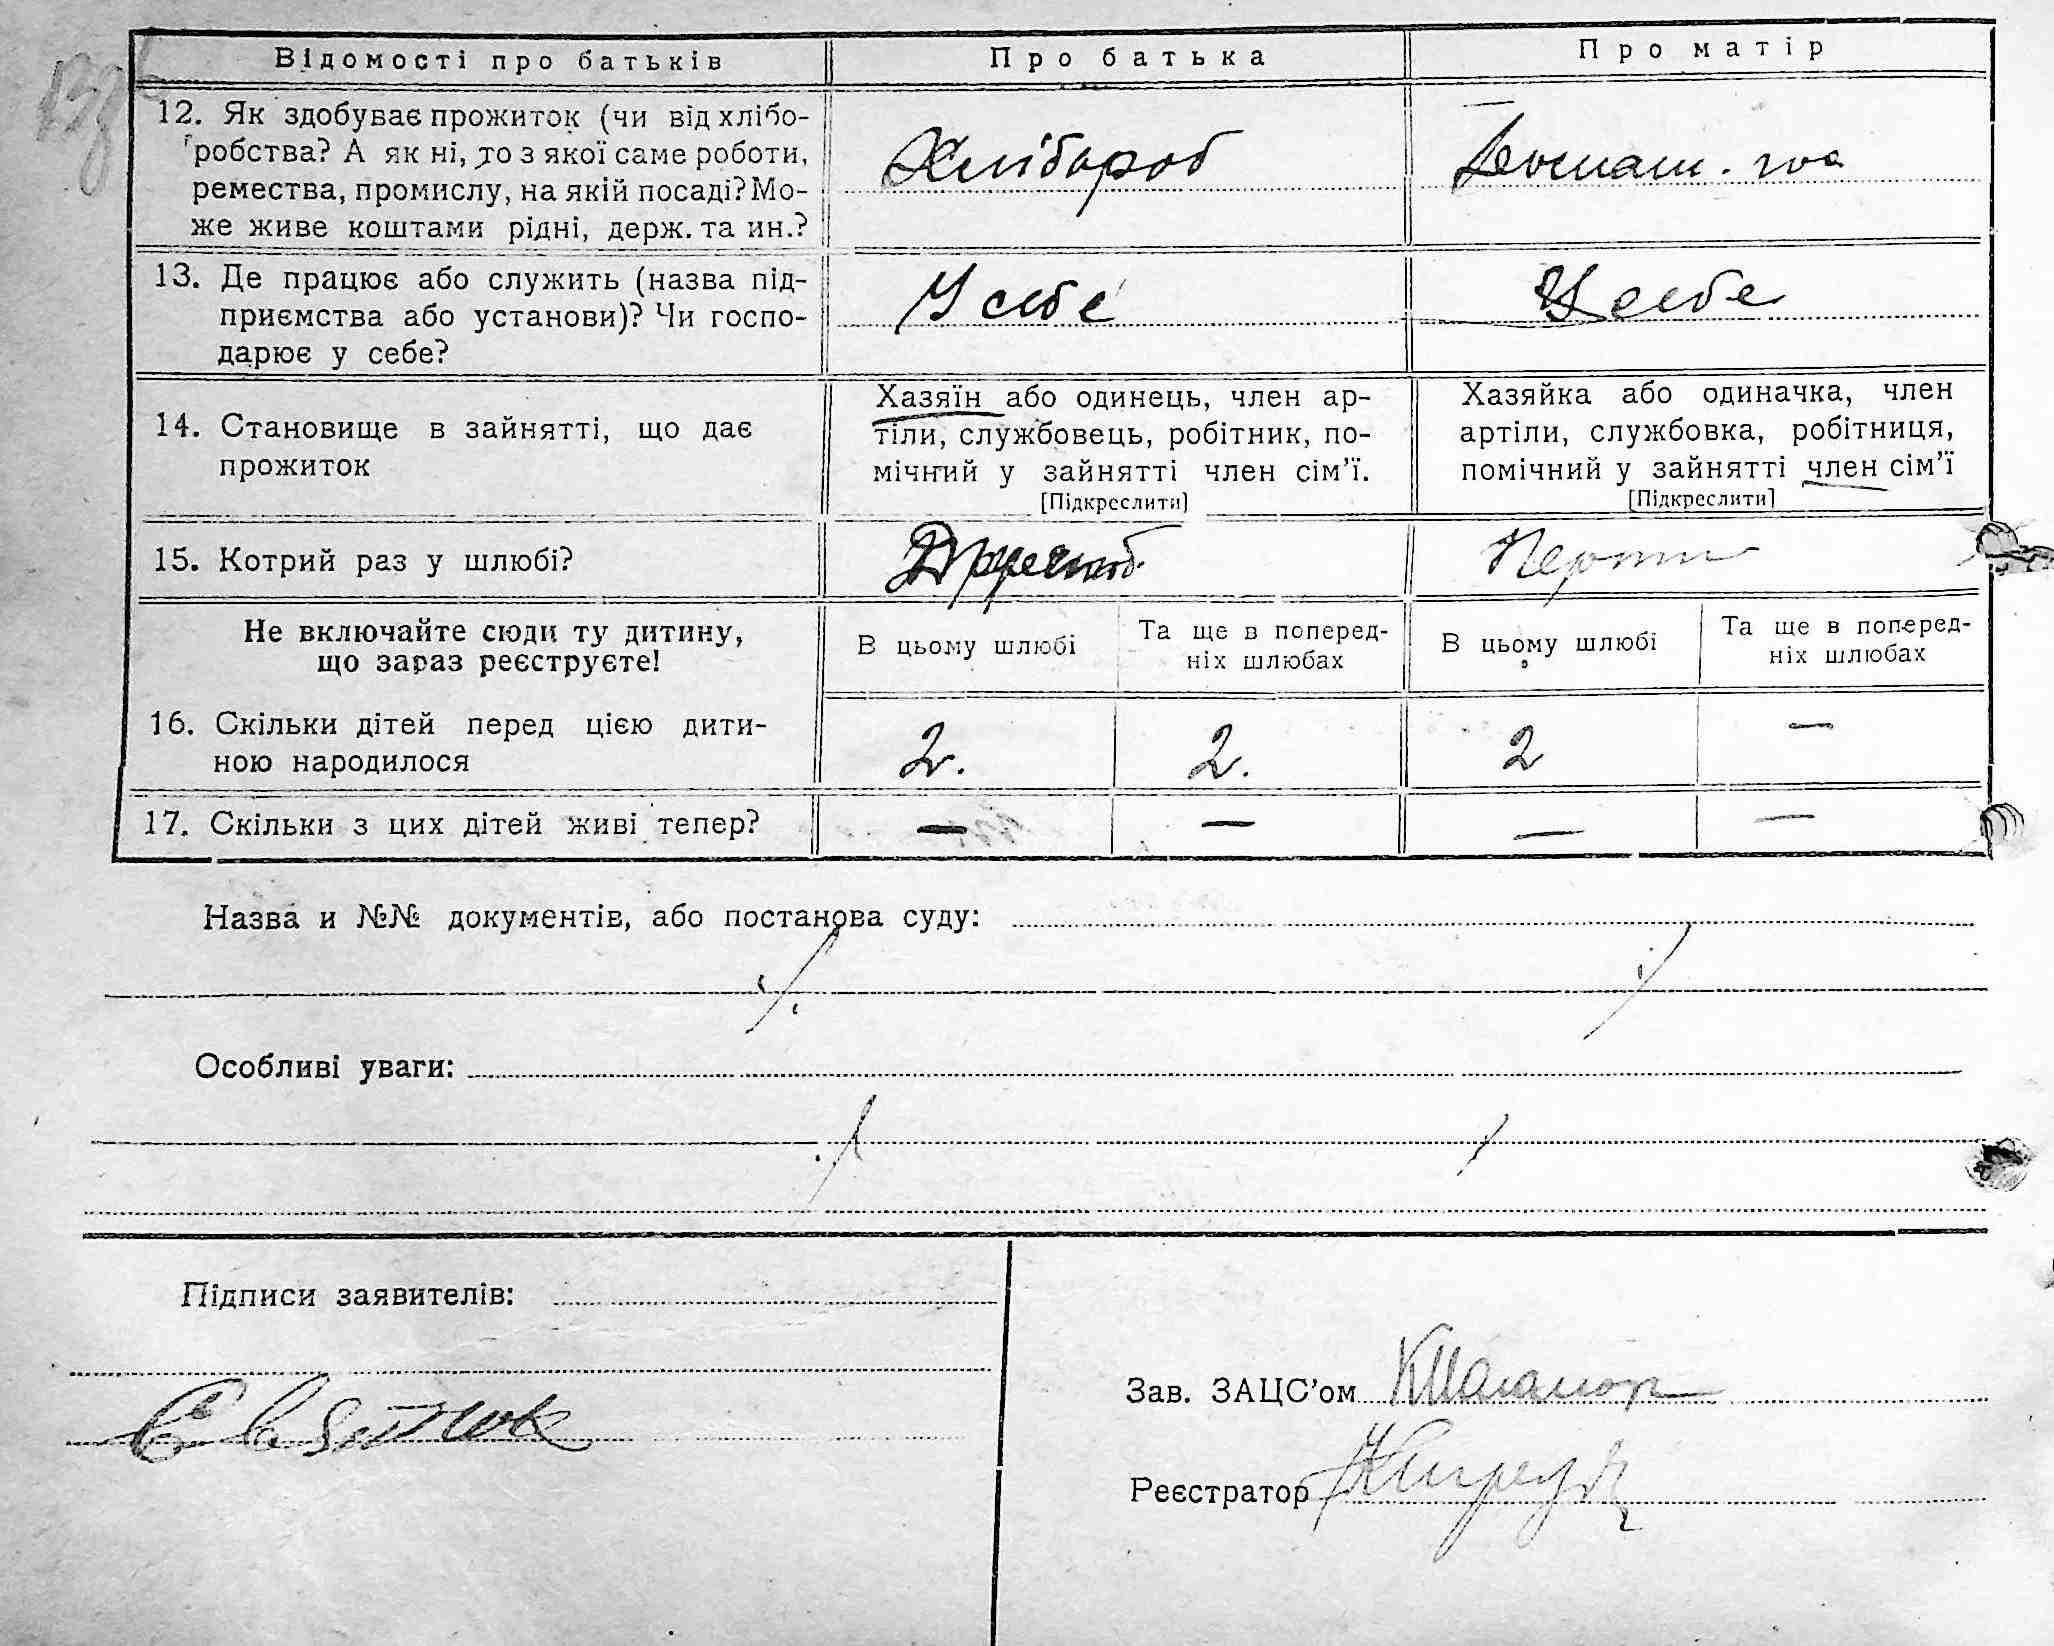 Відомості про батьків
Про батька
Про матір
12. Як здобуває прожиток (чи від хлібо-
робства? А як ні, то з якої саме роботи,
ремества, промислу, на якій посаді? Мо-
же живе коштами рідні, держ. та ин.?
Хлібороб
13. Де працює або служить (назва під-
приємства або установи)? Чи госпо-
дарює у себе?
У себе
У себе
14. Становище в зайнятті, що дає
прожиток
Хазяїн або одинець, член ар-
тіли, службовець, робітник, по-
мічний у зайнятті член сім’ї.
[Підкреслити]
Хазяйка або одиначка, член
артіли, службовка, робітниця,
помічний у зайнятті член сім’ї
[Підкреслити]
15. Котрий раз у шлюбі?
Не включайте сюди ту дитину,
що зараз реєструєте!
В цьому шлюбі
Та ще в поперед-
ніх шлюбах
В цьому шлюбі
Та ще в поперед-
ніх шлюбах
16. Скільки дітей перед цією дити-
ною народилося
2.
2.
2
—
17. Скільки з цих дітей живі тепер?
—
—
—
—
Назва и №№ документів, або постанова суду:
Особливі уваги:
Підписи заявителів:
Зав. ЗАЦС’ом
Реєстратор